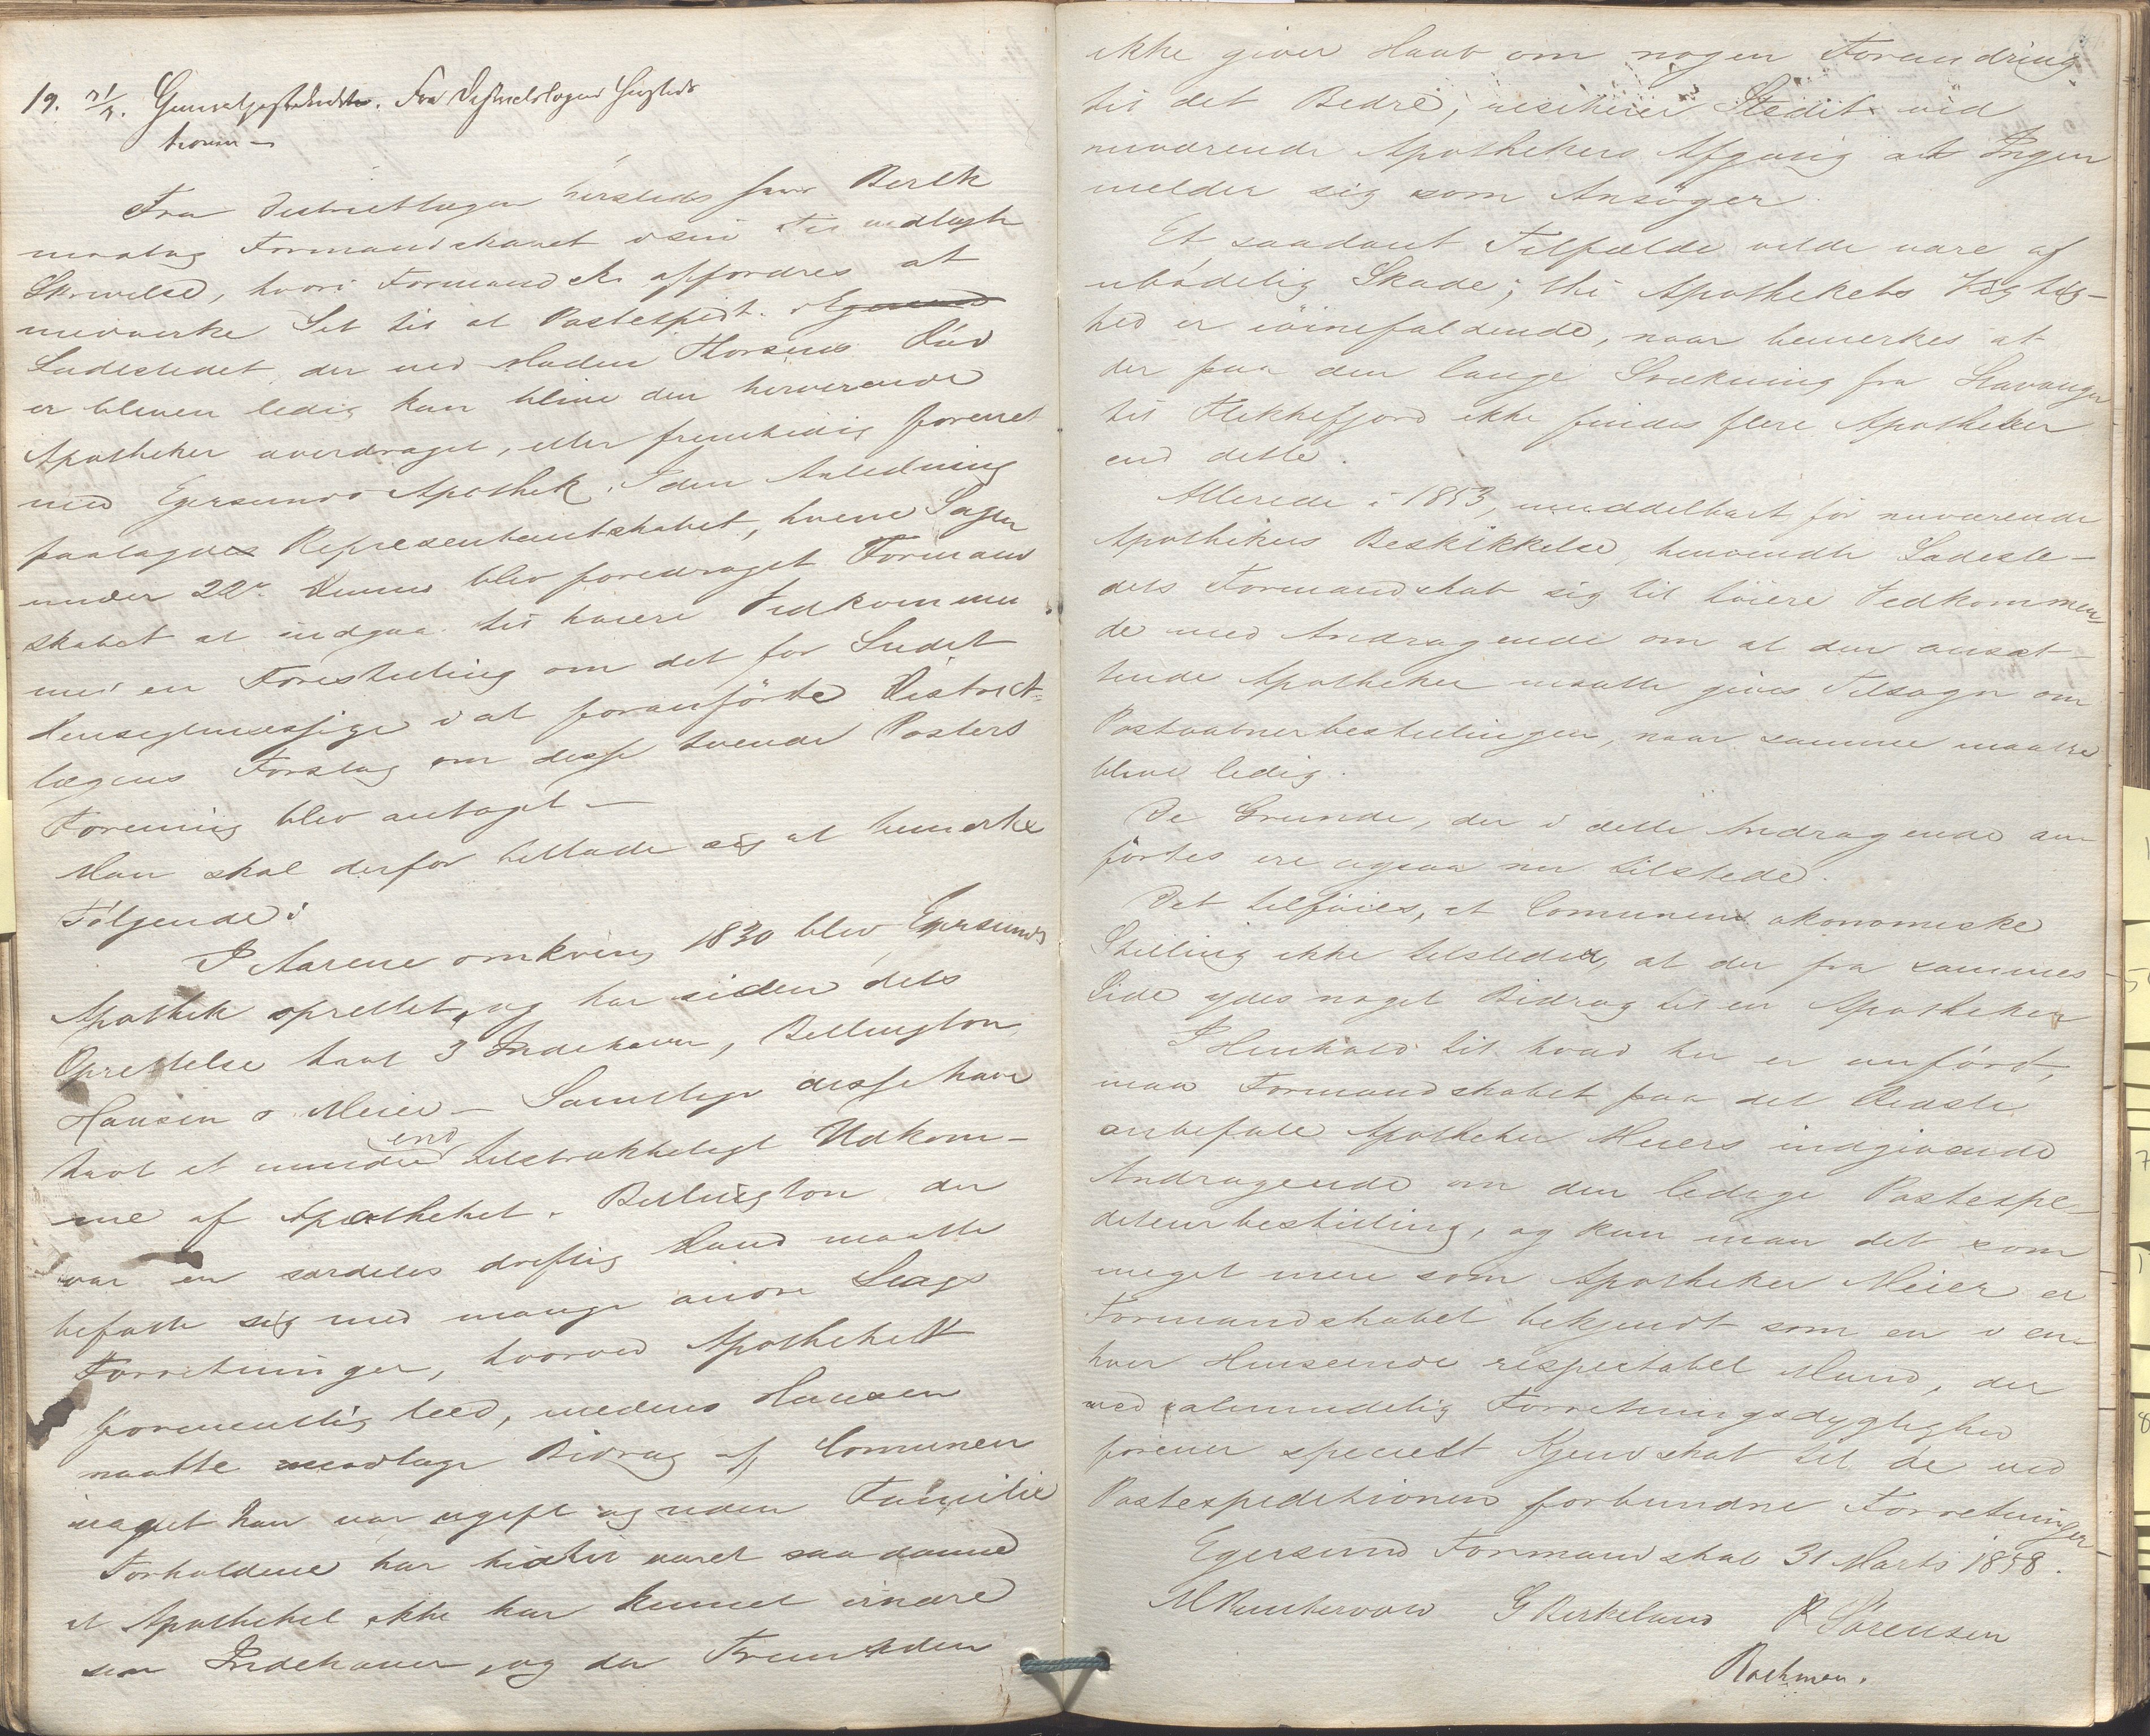 19. 31/3. Fra Districtslægen
Fra Districtlægen hersteds Berlk
modtog Formandskabet i sin Tid indlagte
Skrivelse, hvori Formandsk. affordres at
medvirke Sit til at Postexpedt. i Egersund
Ladestedet, der ved Madam Thorsens Död
er bleven ledig kan blive den herværende
Apotheker overdraget, eller fremtidig forenet
med Egersunds Apothek. I den Anledning
paalagdes Representantskabet, hvem Sagen
under 22de Dennes blev foredraget Formand
skabet at indgaa til höiere Vedkommen
med en Forestilling om det for Stedet
Hensigtsmessige i at foranförte District-
lægens Forslag om disse tvende Posters
Forening blev antaget —
Man skal derfor tillade sig at bemerke
Fölgende:
I Aarene omkring 1830 blev Egersunds
Apothek oprettet, og har siden dets
Oprettelse havt 3 Indehaver, Bellington,
Hansen o Meier — Samtlige disse have
havt et mindre end tilstrækkeligt Udkom-
me af Apotheket. Bellington der
var en særdeles driftig Mand maatte
befatte sig med mange andre Slags
Forretninger, hvorved Apotheket
formentlig leed, medens Hansen
maatte modtage Bidrag af Comunen
uagtet han var ugift og uden Familie
Forholdene har hidtil været saadanne
at Apotheket ikke har kunnet ernære
sin Indehaver, og da Fremtiden
ikke giver Haab om nogen Forandring
til det Bedre, risikerer Stedet ved
nuværende Apothekers Afgang at Ingen
melder sig som Ansöger.
Et saadant Tilfælde vilde være af
ubödelig Skade; thi Apothekets Vigtig-
hed er iöinefaldende, naar bemerkes at
der paa den lange Strækning fra Stavanger
til Flekkefjord ikke findes flere Apotheker
end dette.
Allerede i 1853, umiddelbart för nuværende
Apothekers Beskikkelse, henvendte Ladeste-
dets Formandskab sig til höiere Vedkommen-
de med Andragende om at den ansæt-
tende Apotheker maatte gives Tilsagn om
Postaabnerbestillingen, naar samme maatte
blive ledig.
De Grunde, der i dette Andragende an
förtes ere ogsaa nu tilstede.
Det tilföies, at Comunens økonomiske
Stilling ikke tilsteder, at der fra sammes
Side ydes noget Bidrag til en Apotheker
I Henhold til hvad her er anfört,
maa Formandskabet paa det Bedste
anbefale Apotheker Meiers indgivende
Andragende om den ledige Postexpe-
diteurbestilling, og kan man det saa
meget mere som Apotheker Meier er
Formandskabet bekjendt som en i en-
hver Henseende respectabel Mand, der
med almindelig Forretningsdygtighed
forener specielt Kjendskab til de ved
Postexpeditionen forbundne Forretninger
Egersund Formandskab 31 Marts 1858.
M Puntervold G Birkeland P Sörensen
Rachman.